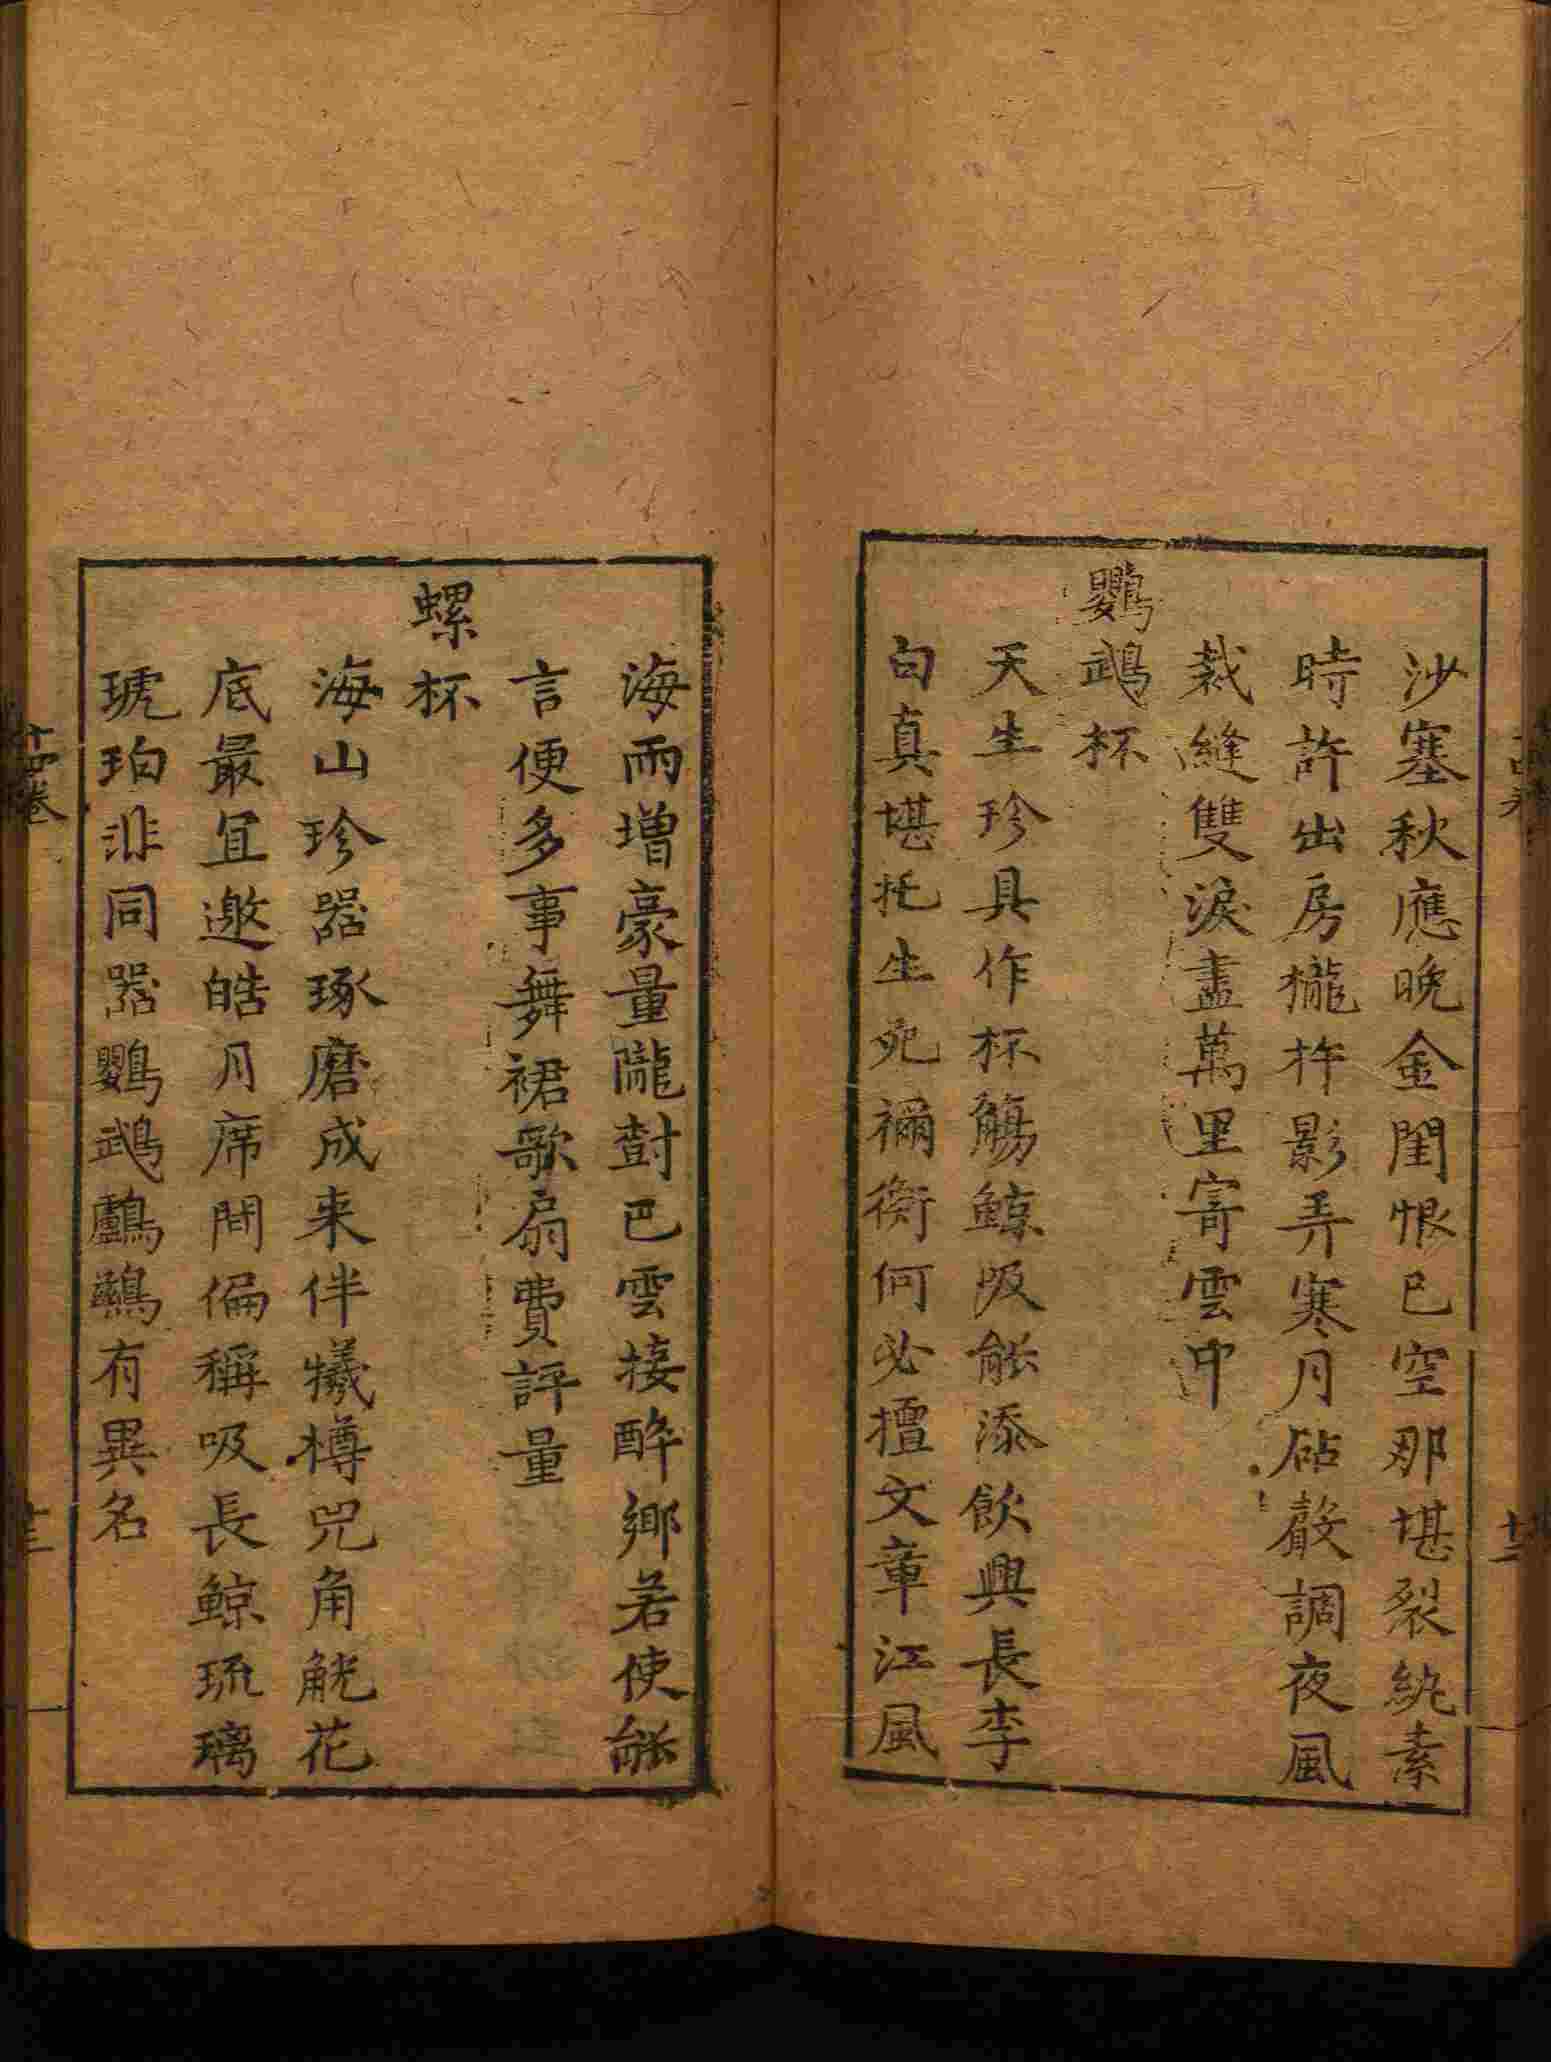 沙塞秋應晚金閨恨已空那堪裂紈素
時許出房櫳杵影弄寒月砧聲調夜風
裁縫雙淚盡萬里寄雲中
鸚鵡杯
天生珍具作杯觴鯨吸能添飲興長李
白真堪托生死禰衡何必擅文章江風
海雨增豪量隴樹巴雲接醉鄉若使能
言便多事舞裙歌扇費評量
螺杯
海山珍器琢磨成来伴犧樽兕角觥花
底最宜邀皓月席間偏稱吸長鯨琉璃
琥珀非同器鸚鵡鸕鷀有異名
十四卷
十三
十二